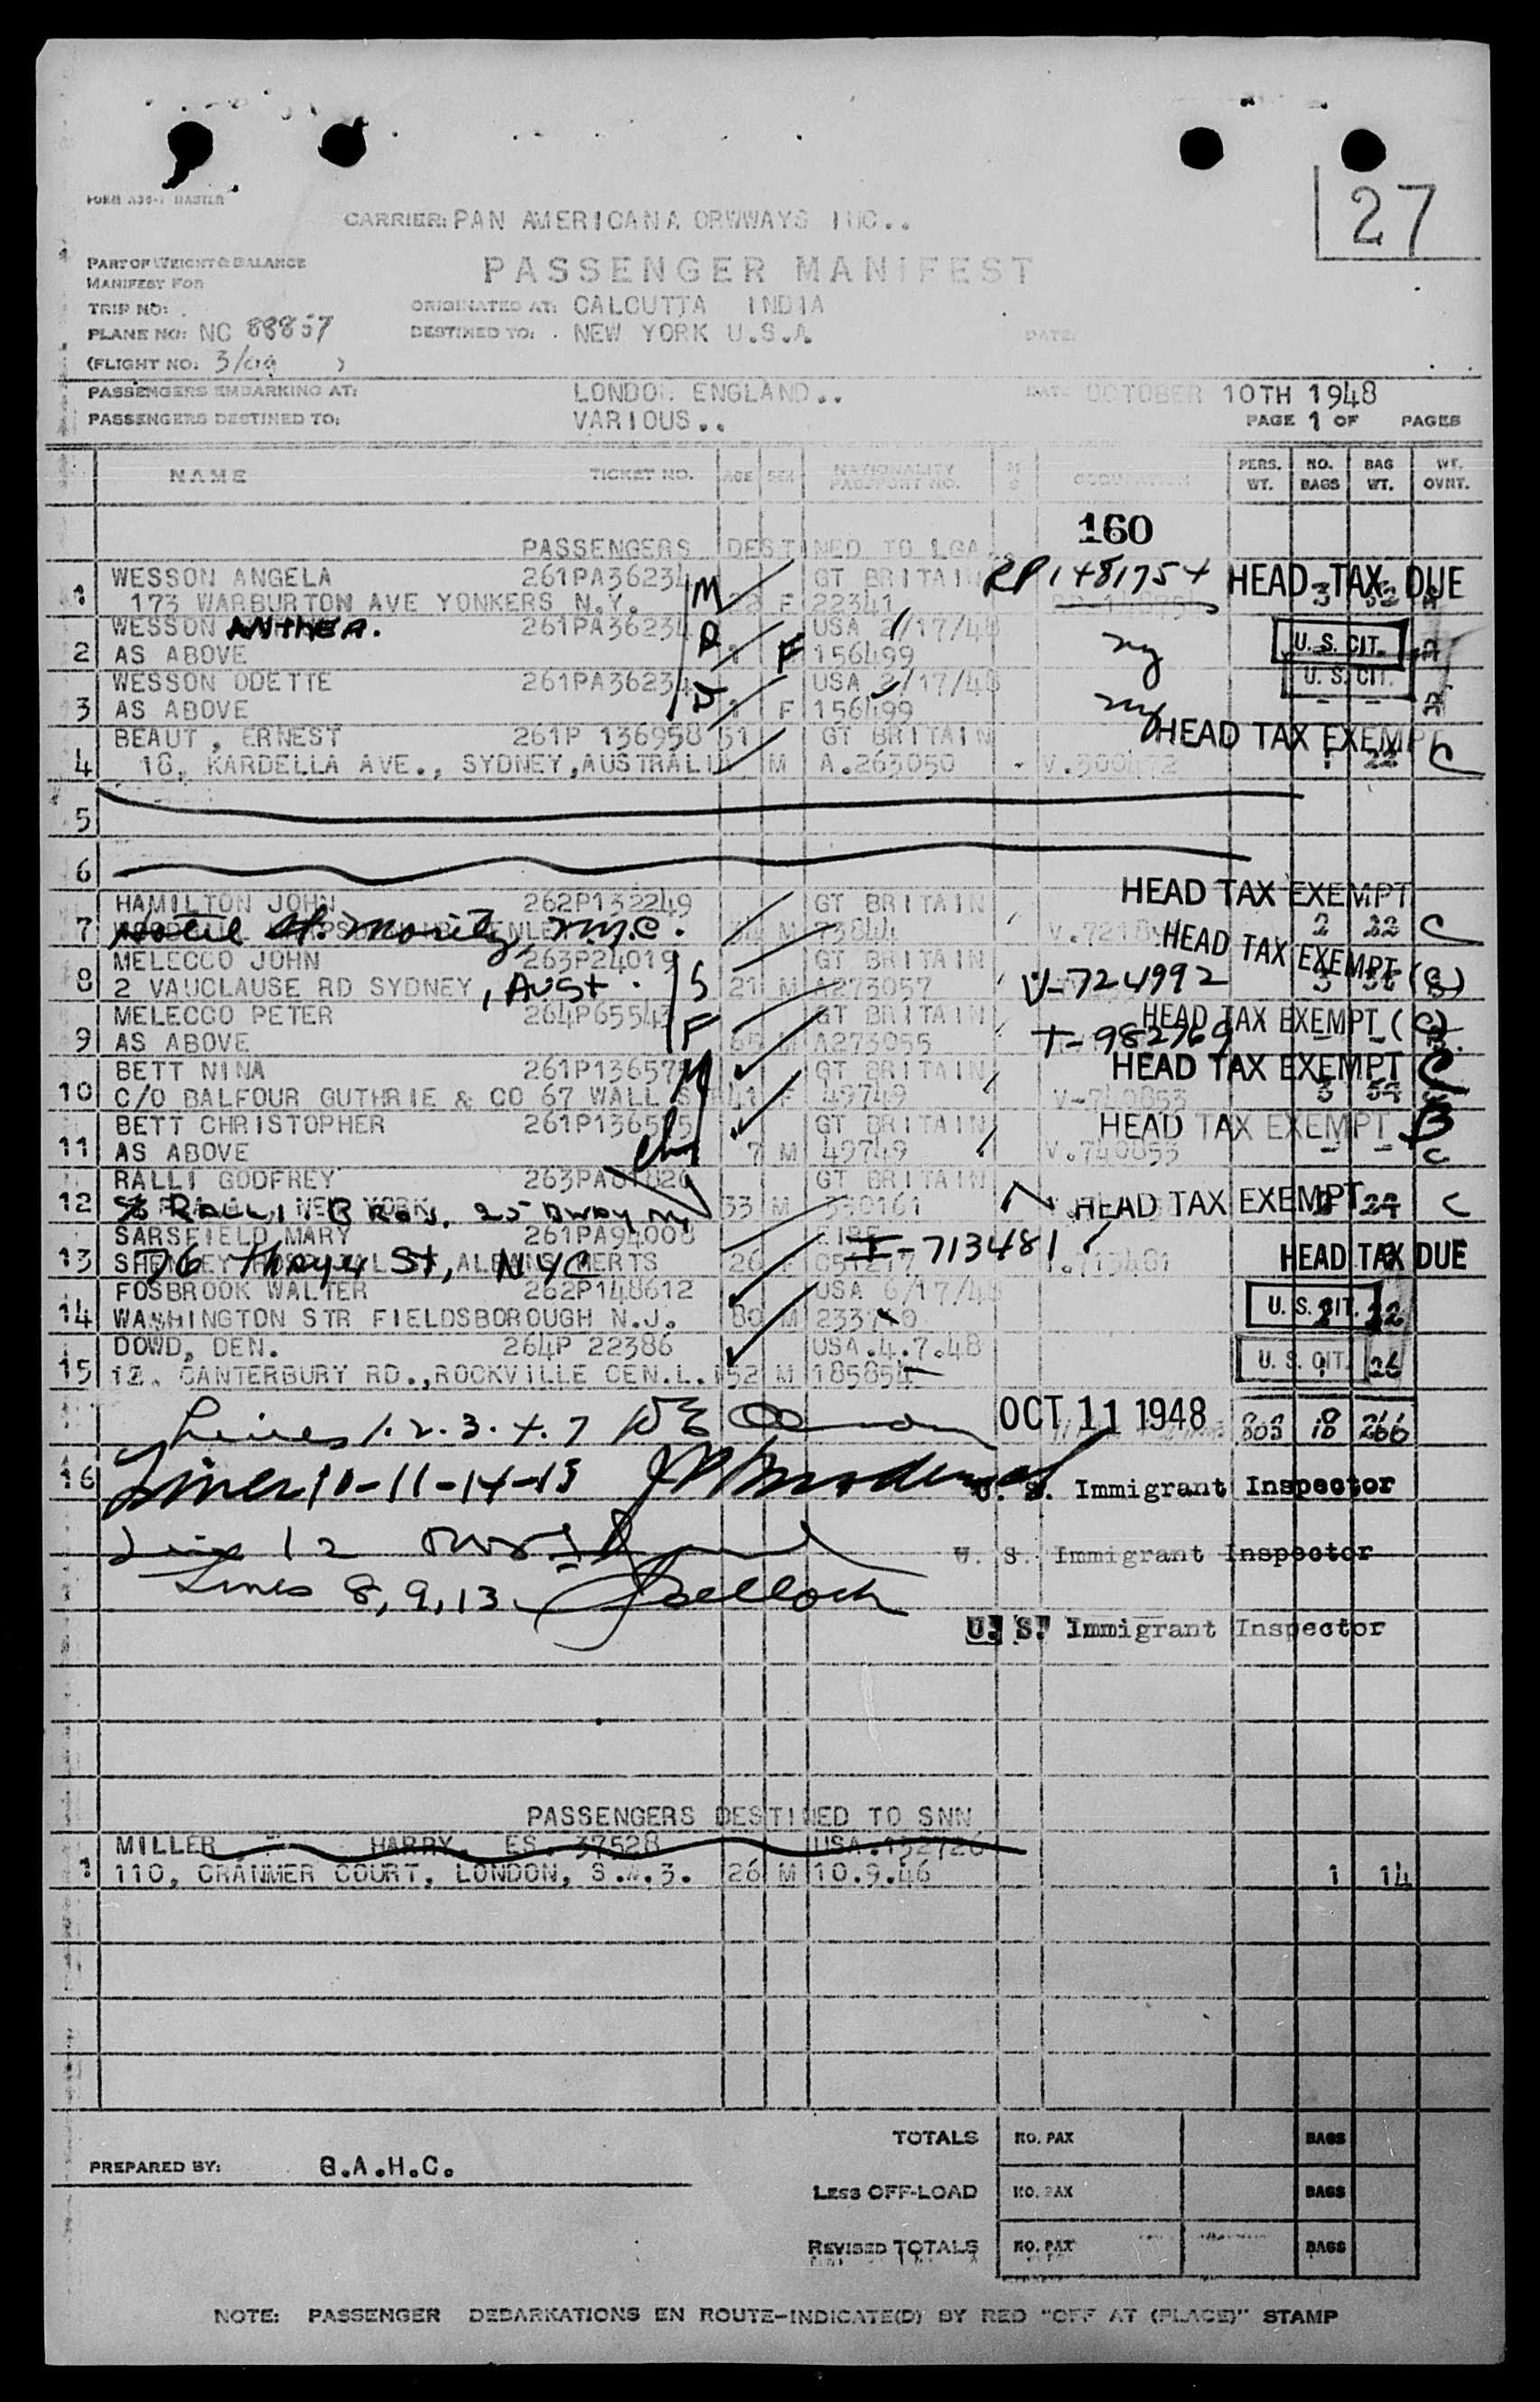 27
FORM
CARRIER: PAN AMERICANA ORWWAYS INC..
PART OF WEIGHT & BALANCE
MANIFEST FOR
PASSENGER MANIFEST
TRIP NO:
ORIGINATED AT: CALCUTTA INDIA
PLANE NO: NC 88857
DESTINED TO: . NEW YORK U.S.A. DATE:
(FLIGHT NO: )
PASSENGERS EMBARKING AT: ENGLAND.. DATE OCTOBER 10TH 1948
PASSENGERS DESTINED TO: VARIOUS.. PAGE 1 OF PAGES
NAME TICKET NO. AGE SEX NATIONALITY PASSPORT NO. M S OCCUPATION PERS. WT. NO. BAGS BAG WT. WT. OVNT.
160
PASSENGERS DESTINED TO LGA
1 WESSON ANGELA 261PA36234 M GT BRITAIN RP 1481754 HEAD TAX DUE
173 WARBURTON AVE YONKERS N.Y. F 22341 3
WESSON ANTHEA. 261PA36234 D USA 2/17/48 U. S. CIT.
2 AS ABOVE F 156499 ny
WESSON ODETTE 261PA36234 D USA 2/17/48 U. S. CIT.
3 AS ABOVE F 156499 ny
BEAUT, ERNEST 261P 136958 51 GT BRITAIN HEAD TAX EXEMPT
4 18, KARDELLA AVE., SYDNEY, AUSTRALIA M A.263050 V.300472 22 C
5
6
HAMILTON JOHN 262P132249 GT BRITAIN HEAD TAX EXEMPT
7 Hotel St. Moritz, N.Y.C. M 73844 2 22 C
MELECCO JOHN 263P24019 S GT BRITAIN HEAD TAX EXEMPT
8 2 VAUCLAUSE RD SYDNEY, Aust. 21 M A273057 V-724992
MELECCO PETER 264P65543 F GT BRITAIN HEAD TAX EXEMPT (C)
9 AS ABOVE 65 M A273055 T-982769
BETT NINA M GT BRITAIN HEAD TAX EXEMPT C
10 C/O BALFOUR GUTHRIE & CO 67 WALL 41 F 49749 V-740853 3
BETT CHRISTOPHER ch GT BRITAIN HEAD TAX EXEMPT B
11 AS ABOVE 7 M 49749 V.740853 C
RALLI GODFREY GT BRITAIN
12 % RALLI BROS. 25 Bway NY 33 M HEAD TAX EXEMPT C
SARSFIELD MARY 261PA94008 EIRE I-713481
13 76 Thayer St, NYC 26 HEAD TAX DUE
FOSBROOK WALTER 262P148612 USA 6/17/48
14 WASHINGTON STR FIELDSBOROUGH N.J. 80 M U. S. CIT.
DOWD, DEN. 264P 22386 USA.4.7.48
15 12. CANTERBURY RD., ROCKVILLE CEN.L.I 52 M 185854 U. S. CIT.
Lines 1.2.3.4.7 OCT 11 1948 18 266
16 Lines 10-11-14-15 U. S. Immigrant Inspector
Line 12 U. S. Immigrant Inspector
Lines 8, 9, 13
U. S. Immigrant Inspector
PASSENGERS DESTINED TO SNN
MILLER HARRY. ES. 37528 USA.152726
1 110, CRANMER COURT, LONDON, S.W.3. 26 M 10.9.46 1 14
TOTALS NO. PAX BAGS
PREPARED BY: G.A.H.C.
LESS OFF-LOAD NO. PAX BAGS
REVISED TOTALS NO. PAX BAGS
NOTE: PASSENGER DEBARKATIONS EN ROUTE-INDICATE(D) BY RED "OFF AT (PLACE)" STAMP